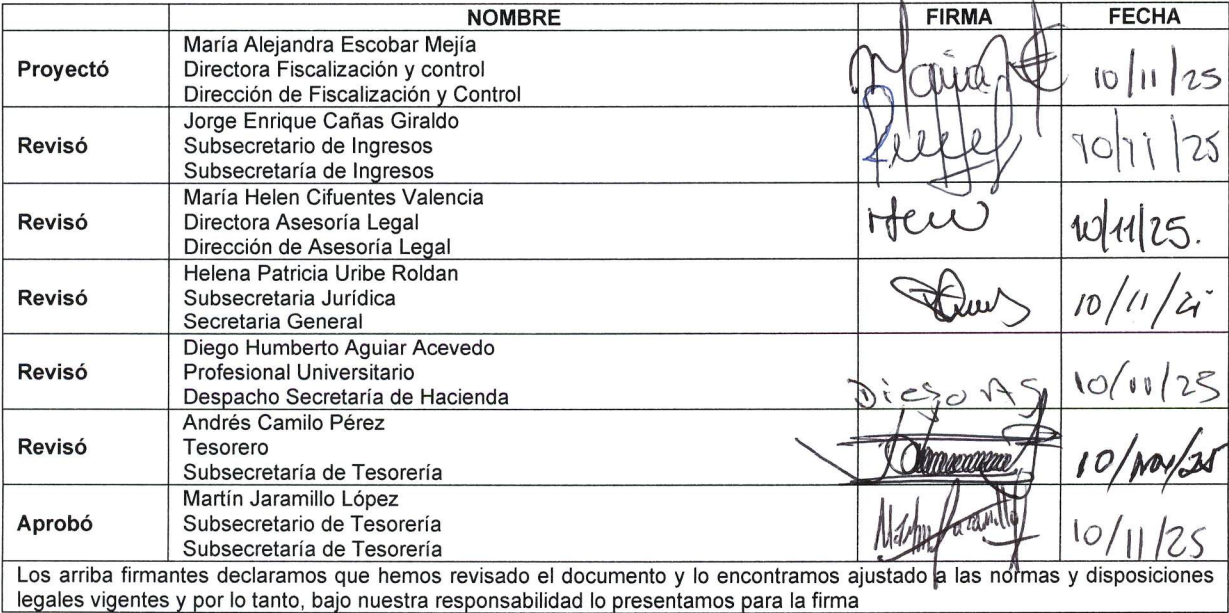 NOMBRE FIRMA FECHA
Proyectó
María Alejandra Escobar Mejía
Directora Fiscalización y control
Dirección de Fiscalización y Control
María 10/11/25
Revisó
Jorge Enrique Cañas Giraldo
Subsecretario de Ingresos
Subsecretaría de Ingresos
10/11/25
Revisó
María Helen Cifuentes Valencia
Directora Asesoría Legal
Dirección de Asesoría Legal
10/11/25.
Revisó
Helena Patricia Uribe Roldan
Subsecretaria Jurídica
Secretaria General
Revisó
Diego Humberto Aguiar Acevedo
Profesional Universitario
Despacho Secretaría de Hacienda
Diego A 10/11/25
Revisó
Andrés Camilo Pérez
Tesorero
Subsecretaría de Tesorería
10/nov/25
Aprobó
Martín Jaramillo López
Subsecretario de Tesorería
Subsecretaría de Tesorería
Martín Jaramillo 10/11/25
Los arriba firmantes declaramos que hemos revisado el documento y lo encontramos ajustado a las normas y disposiciones
legales vigentes y por lo tanto, bajo nuestra responsabilidad lo presentamos para la firma